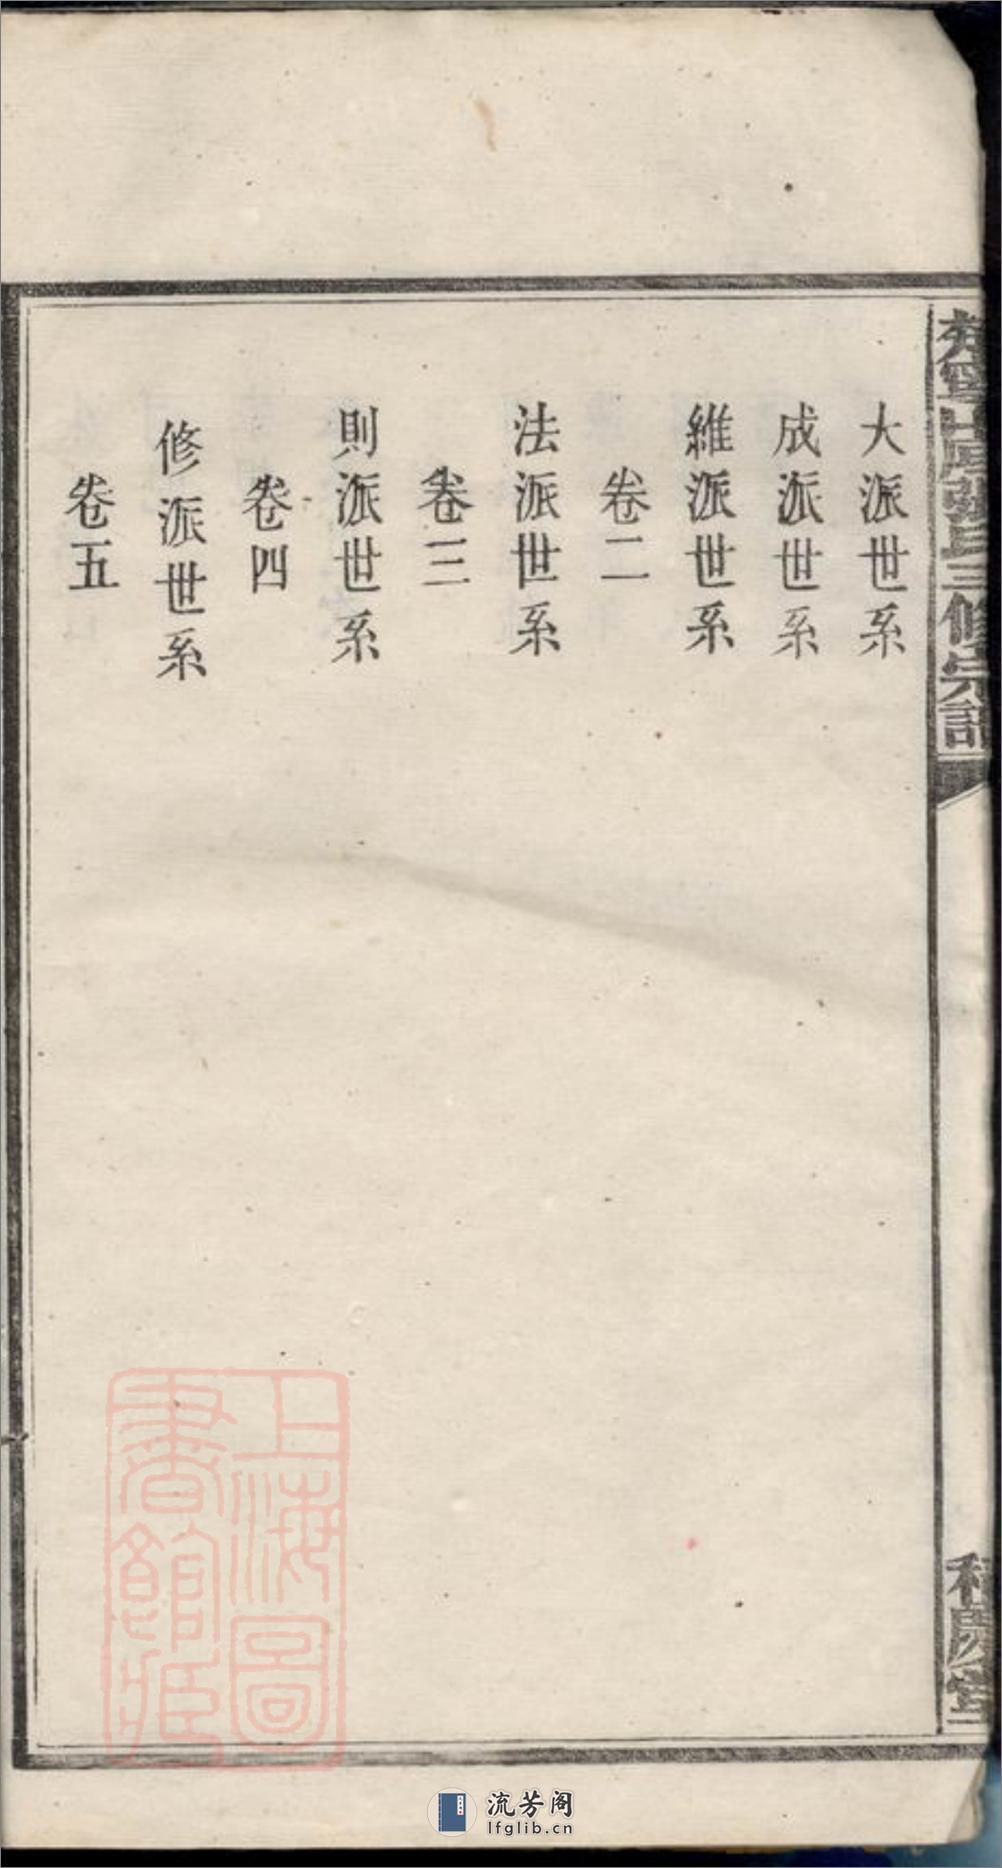 三修宗譜
大派世系
成派世系
維派世系
卷二
法派世系
卷三
則派世系
卷四
修派世系
卷五
上海圖
書館藏
流芳阁
lfglib.cn